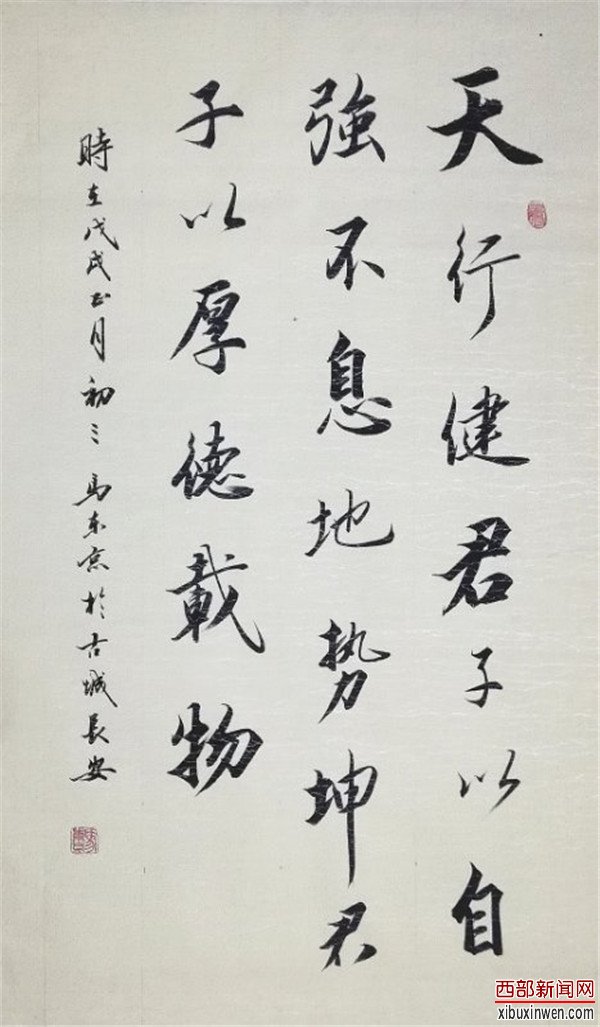 天行健君子以自
強不息地势坤君
子以厚德載物
時在戊戌正月初三馬東京於古城長安
西部新闻网
xibuxinwen.com